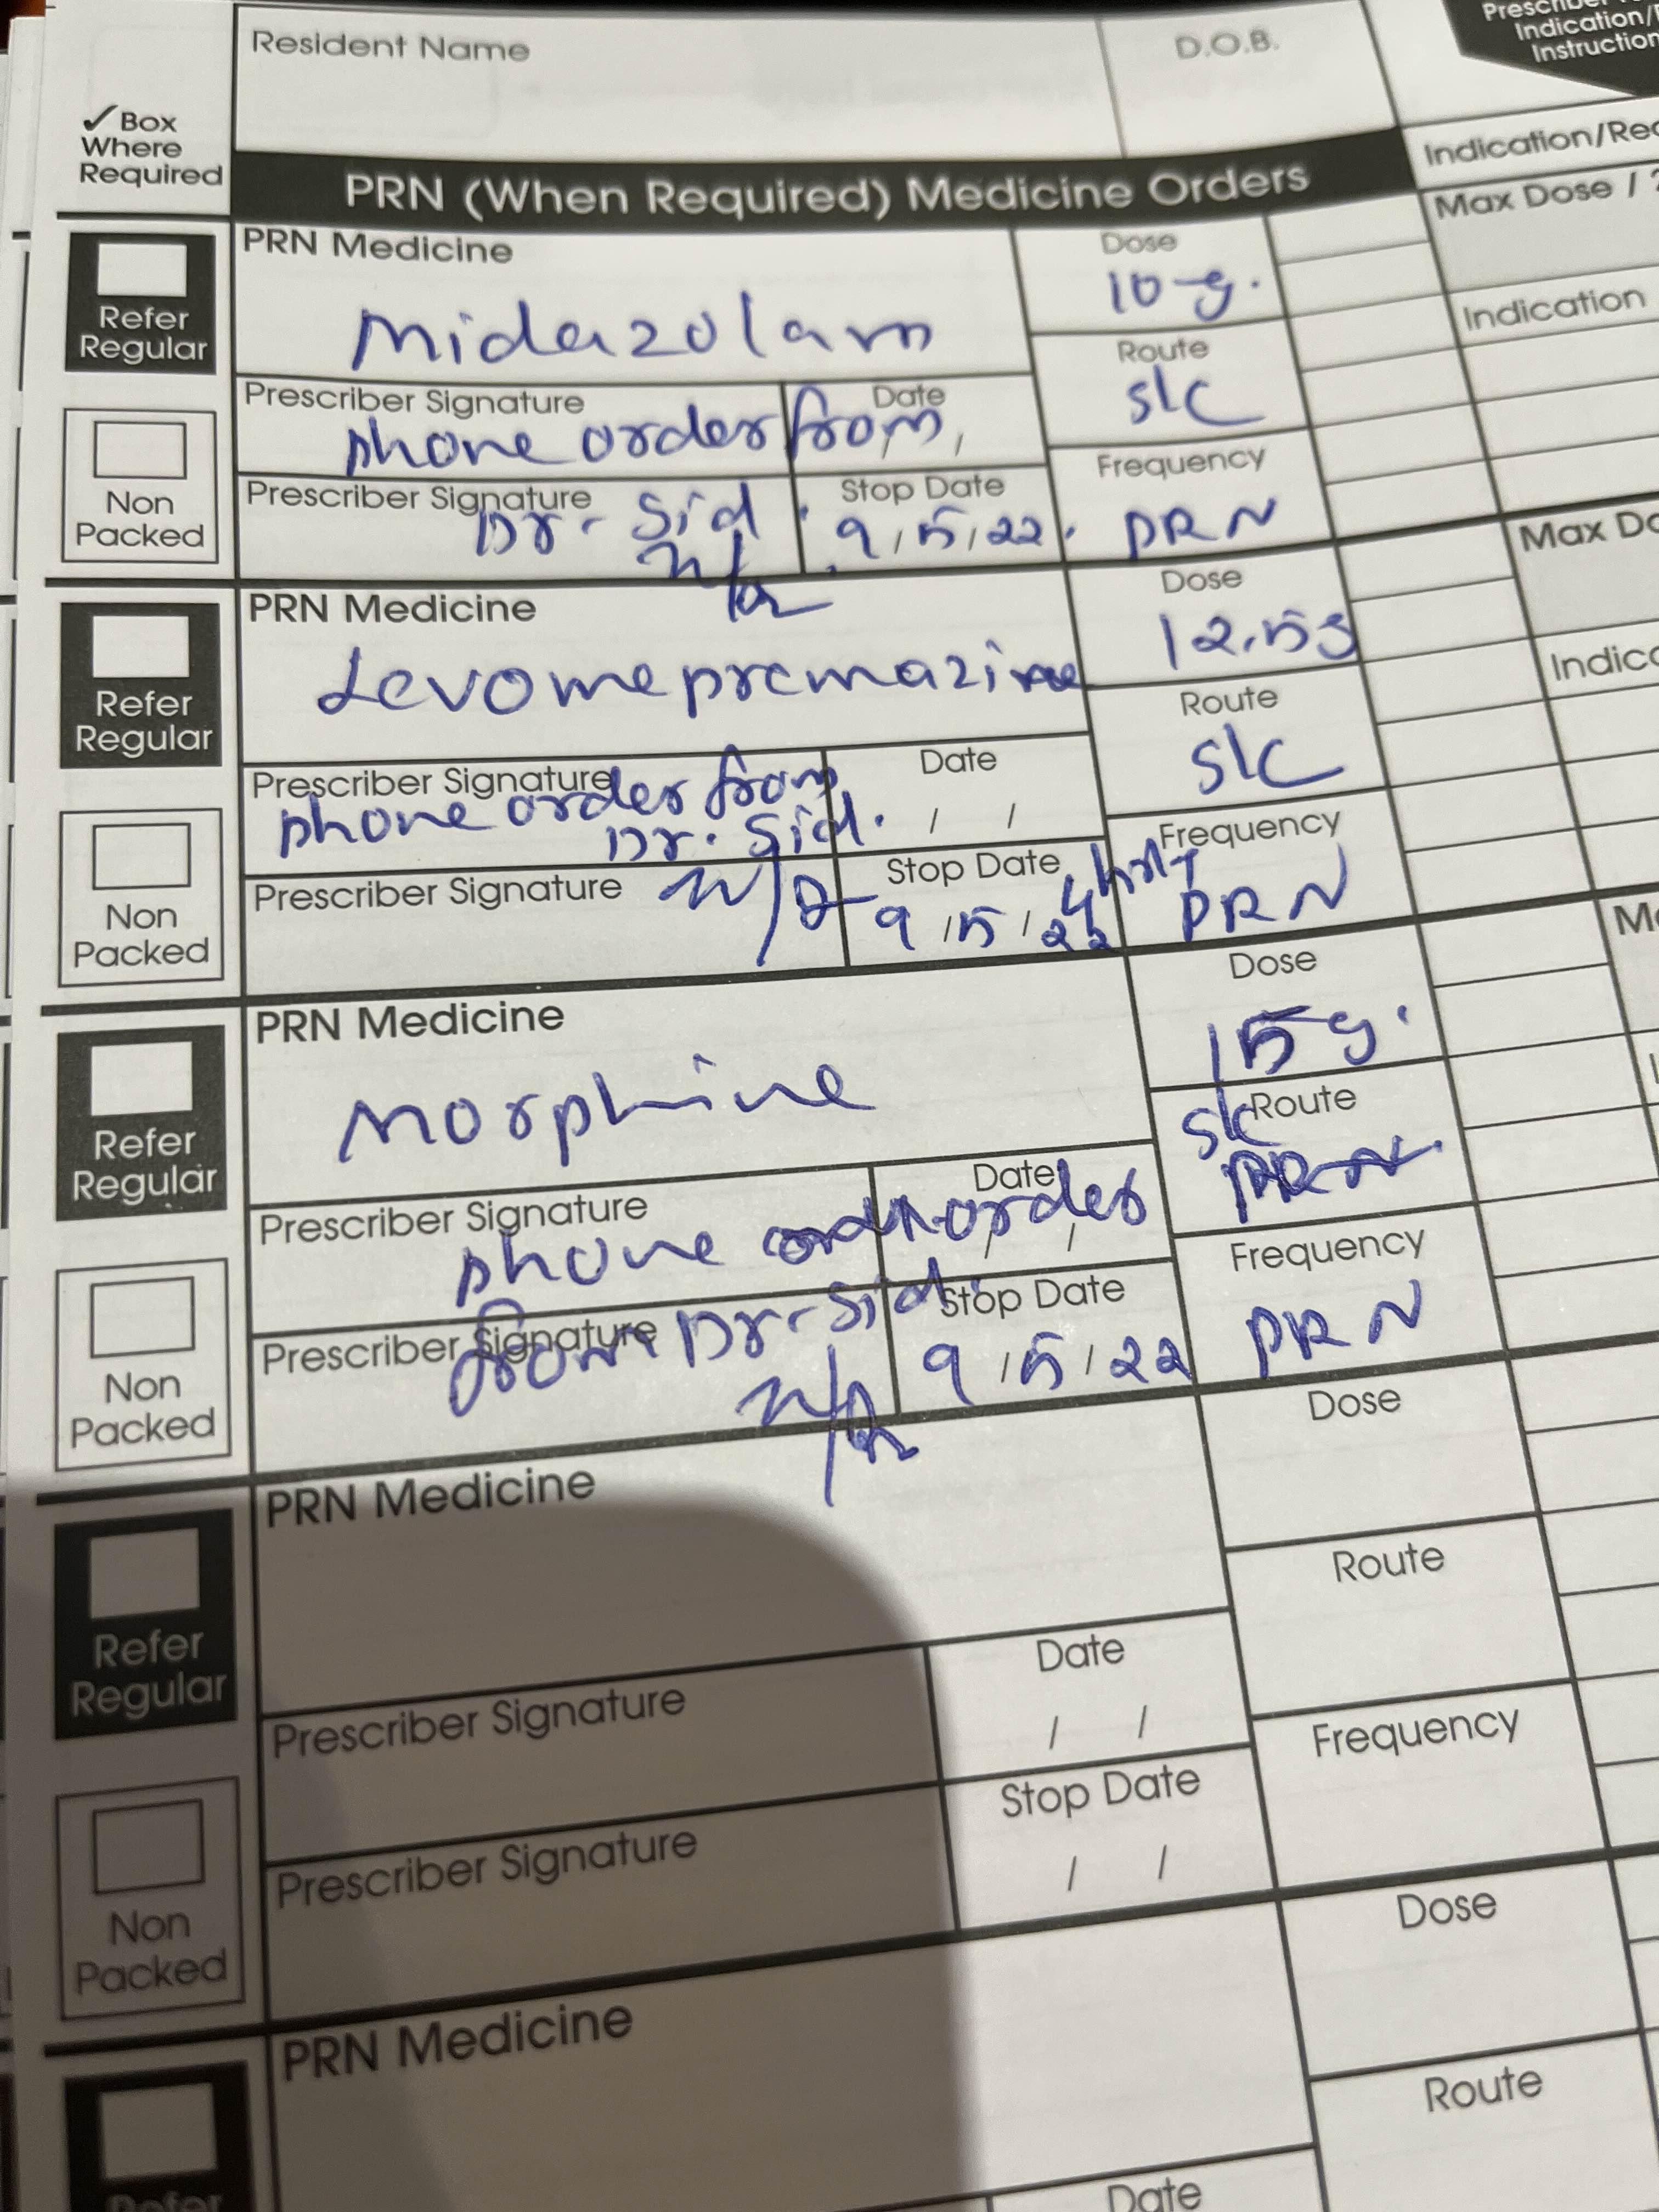 Resident Name
D.O.B.
Prescriber
Indication/
Instruction
✓ Box
Where
Required
PRN (When Required) Medicine Orders
Indication/Rea
Max Dose /
Refer
Regular
Non
Packed
PRN Medicine
Midazolam
Dose
10 g.
Route
s/c
Frequency
PRN
Indication
Prescriber Signature
Date
phone order from
Prescriber Signature
Dr. Sid
Stop Date
9/5/22.
Max Do
Refer
Regular
Non
Packed
PRN Medicine
Levomepremazine
Dose
12.5g
Route
s/c
Frequency
PRN
Indica
Prescriber Signature
Date
phone order from
Dr. Sid.
/ /
Prescriber Signature
Stop Date
9/5/22
Refer
Regular
Non
Packed
PRN Medicine
Morphine
Dose
15 g.
Route
s/c
Frequency
PRN
Prescriber Signature
Date
phone order
/ /
Prescriber Signature
from Dr. Sid.
Stop Date
9/5/22
Refer
Regular
Non
Packed
PRN Medicine
Dose
Route
Frequency
Prescriber Signature
Date
/ /
Prescriber Signature
Stop Date
/ /
Refer
PRN Medicine
Dose
Route
Date